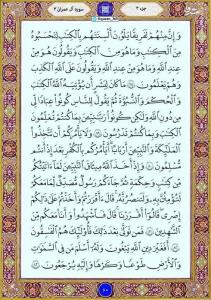 جزء ٣
سورة آل عمران ٣
وَإِنَّ مِنْهُمْ لَفَرِيقًا يَلْوُونَ أَلْسِنَتَهُم بِالْكِتَٰبِ لِتَحْسَبُوهُ
مِنَ الْكِتَٰبِ وَمَا هُوَ مِنَ الْكِتَٰبِ وَيَقُولُونَ هُوَ مِنْ
عِندِ اللَّهِ وَمَا هُوَ مِنْ عِندِ اللَّهِ وَيَقُولُونَ عَلَى اللَّهِ الْكَذِبَ
وَهُمْ يَعْلَمُونَ ٧٨ مَا كَانَ لِبَشَرٍ أَن يُؤْتِيَهُ اللَّهُ الْكِتَٰبَ
وَالْحُكْمَ وَالنُّبُوَّةَ ثُمَّ يَقُولَ لِلنَّاسِ كُونُوا عِبَادًا لِّي مِن
دُونِ اللَّهِ وَلَٰكِن كُونُوا رَبَّٰنِيِّنَ بِمَا كُنتُمْ تُعَلِّمُونَ
الْكِتَٰبَ وَبِمَا كُنتُمْ تَدْرُسُونَ ٧٩ وَلَا يَأْمُرَكُمْ أَن تَتَّخِذُوا
الْمَلَٰئِكَةَ وَالنَّبِيِّنَ أَرْبَابًا أَيَأْمُرُكُم بِالْكُفْرِ بَعْدَ إِذْ أَنتُم
مُّسْلِمُونَ ٨٠ وَإِذْ أَخَذَ اللَّهُ مِيثَٰقَ النَّبِيِّنَ لَمَا ءَاتَيْتُكُم
مِّن كِتَٰبٍ وَحِكْمَةٍ ثُمَّ جَاءَكُمْ رَسُولٌ مُّصَدِّقٌ لِّمَا مَعَكُمْ
لَتُؤْمِنُنَّ بِهِ وَلَتَنصُرُنَّهُ قَالَ ءَأَقْرَرْتُمْ وَأَخَذْتُمْ عَلَىٰ ذَٰلِكُمْ
إِصْرِي قَالُوا أَقْرَرْنَا قَالَ فَاشْهَدُوا وَأَنَا مَعَكُم مِّنَ
الشَّٰهِدِينَ ٨١ فَمَن تَوَلَّىٰ بَعْدَ ذَٰلِكَ فَأُولَٰئِكَ هُمُ الْفَٰسِقُونَ
٨٢ أَفَغَيْرَ دِينِ اللَّهِ يَبْغُونَ وَلَهُ أَسْلَمَ مَن فِي السَّمَٰوَٰتِ
وَالْأَرْضِ طَوْعًا وَكَرْهًا وَإِلَيْهِ يُرْجَعُونَ ٨٣
٦٠